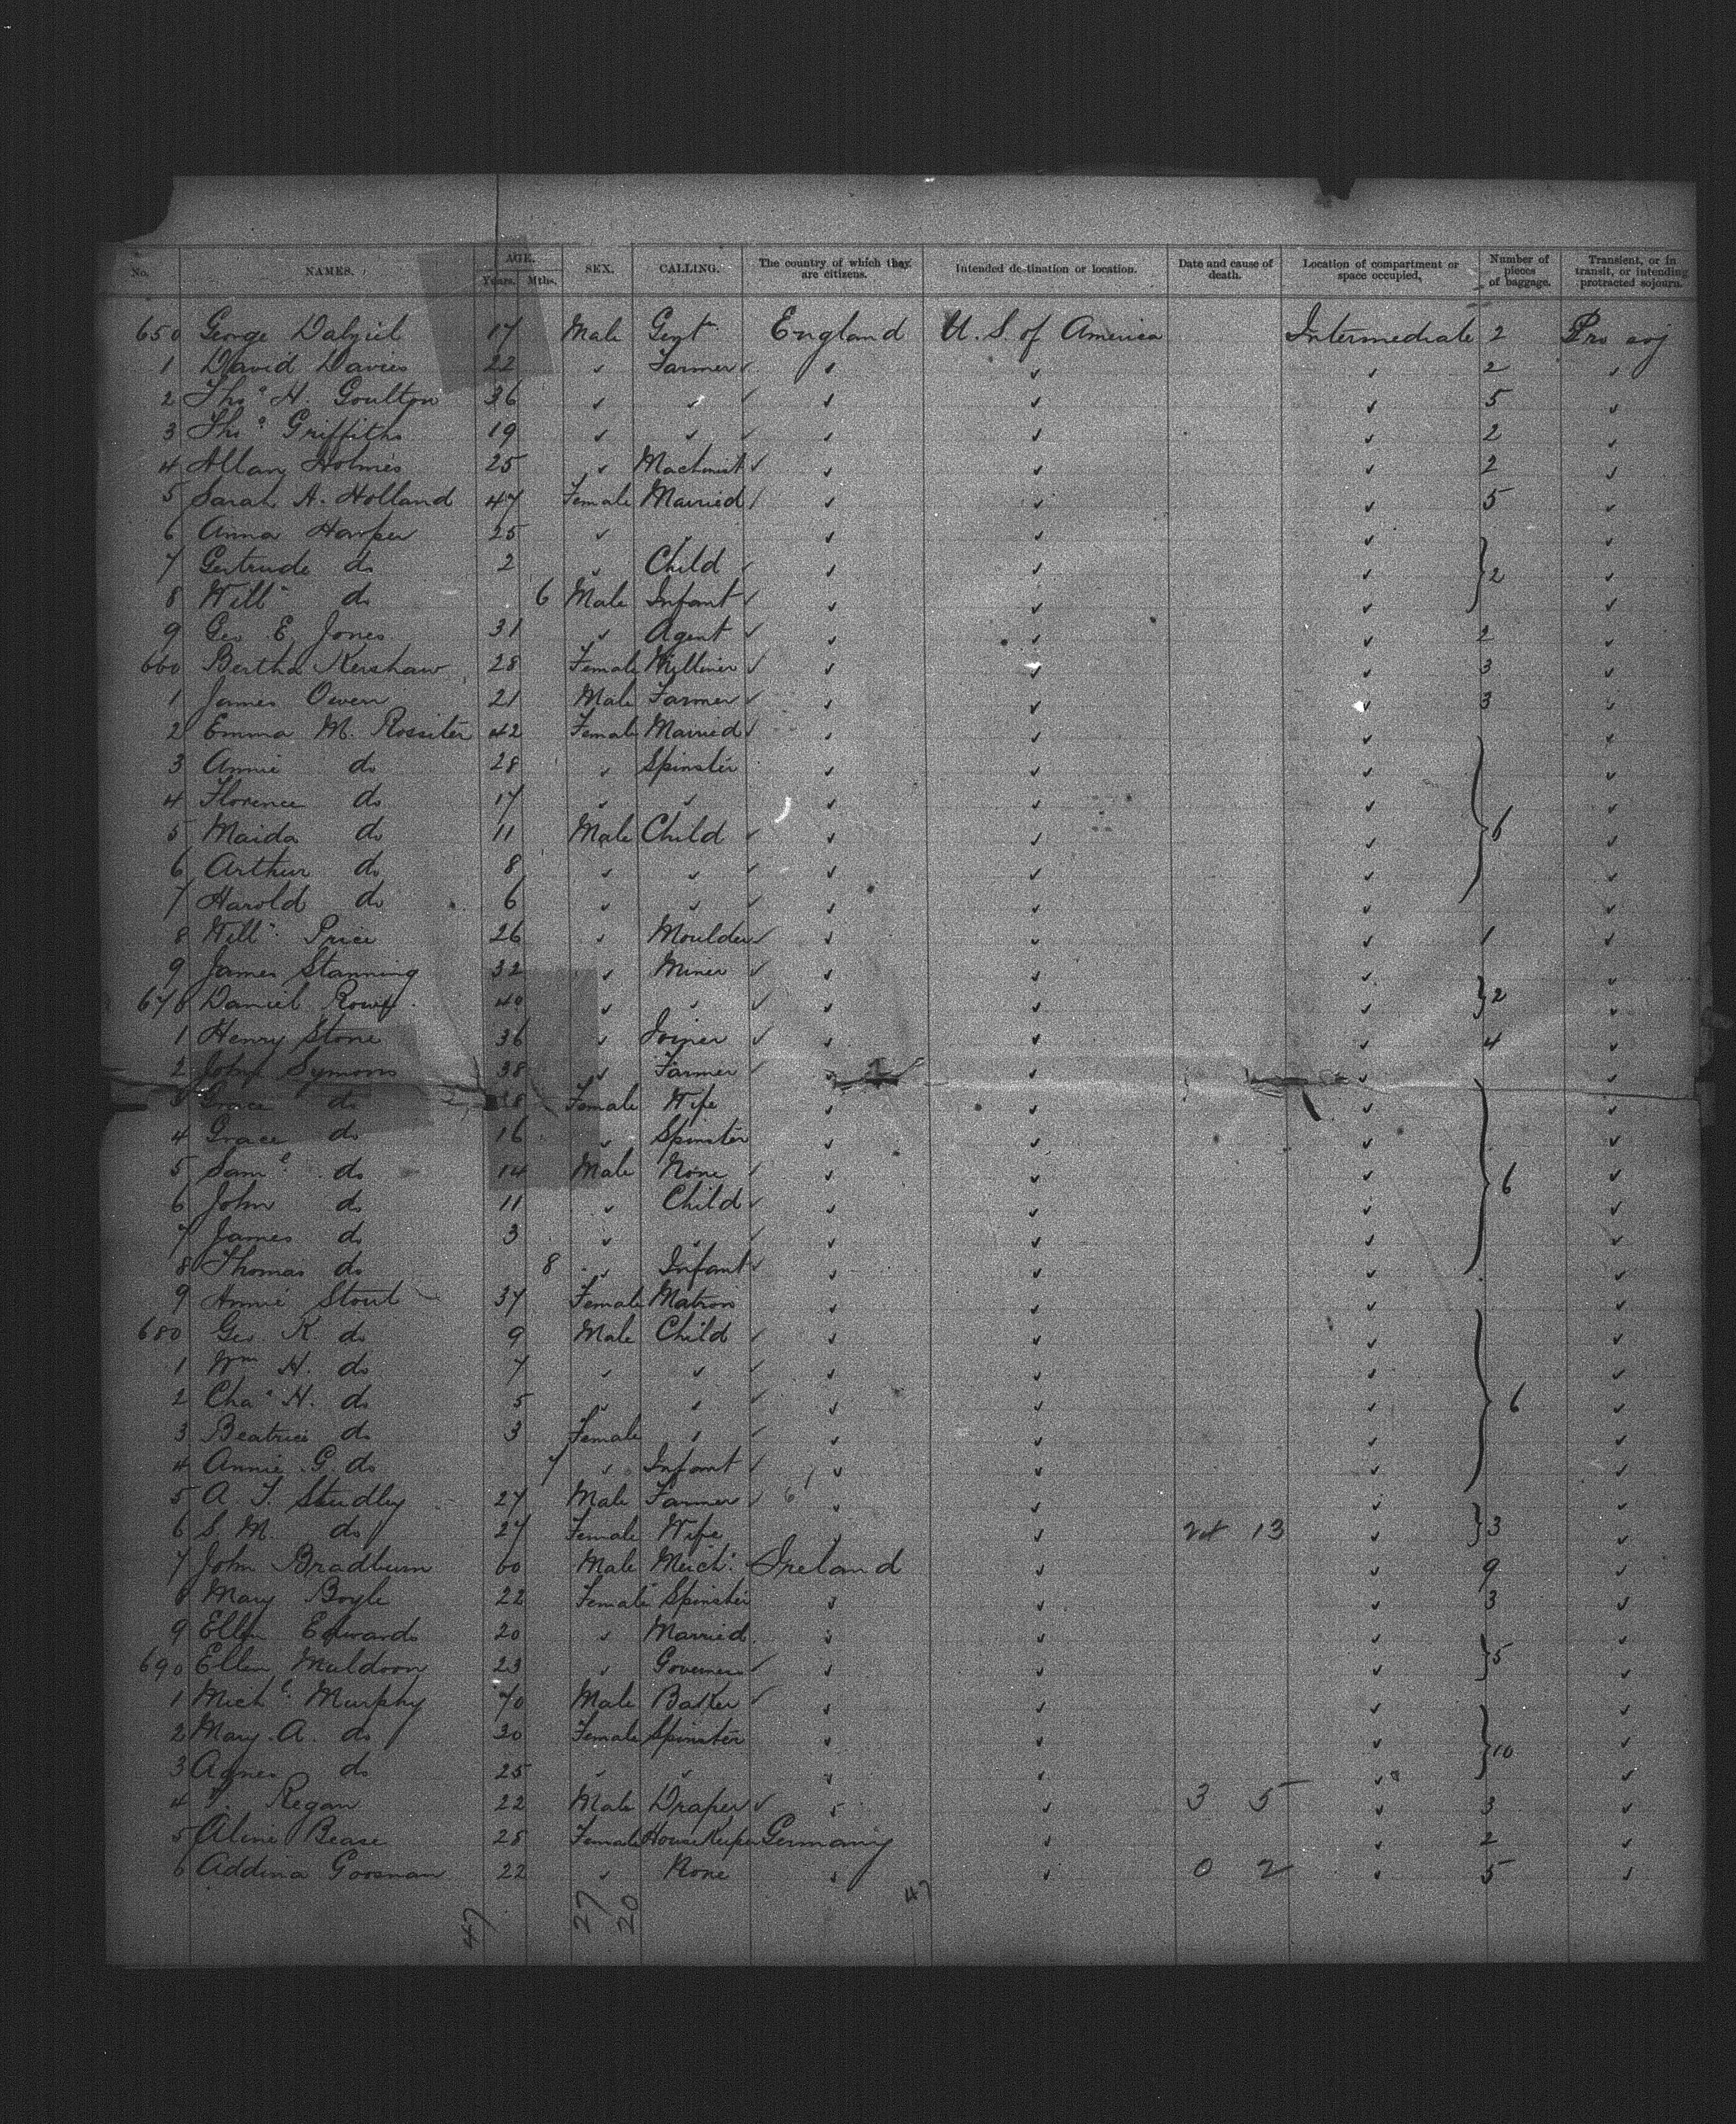 No. NAMES. AGE. Years. Mths. SEX. CALLING. The country of which they are citizens. Intended destination or location. Date and cause of death. Location of compartment or space occupied, Number of pieces of baggage. Transient, or in transit, or intending protracted sojourn.
650 George Dalziel 17 Male Gent England U. S. of America Intermediate 2 Pro soj
1 David Davies 22 " Farmer " " " 2 "
2 Thos H. Goulton 36 " " " " " 5 "
3 Thos Griffiths 19 " " " " " 2 "
4 Allan Holmes 25 " Machinist " " " 2 "
5 Sarah A. Holland 47 Female Married " " " 5 "
6 Anna Harper 25 " " " " " "
7 Gertrude do 2 " Child " " " 2 "
8 Willm do 6 Male Infant " " " "
9 Geo E. Jones 31 " Agent " " " 2 "
660 Bertha Kershaw 28 Female Milliner " " " 3 "
1 James Owen 21 Male Farmer " " " 3 "
2 Emma M. Rossiter 42 Female Married " " " "
3 Annie do 28 " Spinster " " " "
4 Florence do 17 " " " " " "
5 Maida do 11 Male Child " " " 6 "
6 Arthur do 8 " " " " " "
7 Harold do 6 " " " " " "
8 Willm Price 26 " Moulder " " " 1 "
9 James Stanning 32 " Miner " " " "
670 Daniel Rowe 40 " " " " " 2 "
1 Henry Stone 36 " Joiner " " " 4 "
2 John Symons 38 " Farmer " " " "
3 Grace do 38 Female Wife " " " "
4 Grace do 16 " Spinster " " " "
5 Saml do 14 Male None " " " 6 "
6 John do 11 " Child " " " "
7 James do 3 " " " " " "
8 Thomas do 8 " Infant " " " "
9 Annie Stout 37 Female Matron " " " "
680 Geo K. do 9 Male Child " " " "
1 Wm H. do 7 " " " " " "
2 Chas H. do 5 " " " " " 6 "
3 Beatrice do 3 Female " " " " "
4 Annie G. do 7 " Infant " " " "
5 A. T. Studley 27 Male Farmer " " " "
6 S. M. do 27 Female Wife " " 13 " 3 "
7 John Bradburn 60 Male Mercht Ireland " " 9 "
8 Mary Boyle 22 Female Spinster " " " 3 "
9 Ellen Edwards 20 " Married " " " "
690 Ellen Muldoon 23 " Governess " " " 5 "
1 Michl Murphy 70 Male Baker " " " "
2 Mary A. do 30 Female Spinster " " " 10 "
3 Agnes do 25 " " " " " "
4 Regan 22 Male Draper " " 3 5 " 3 "
5 Aline Bease 25 Female House Keeper Germany " " 2 "
6 Addina Goosman 22 " None " " 0 2 " 5 "
47 27 20 47